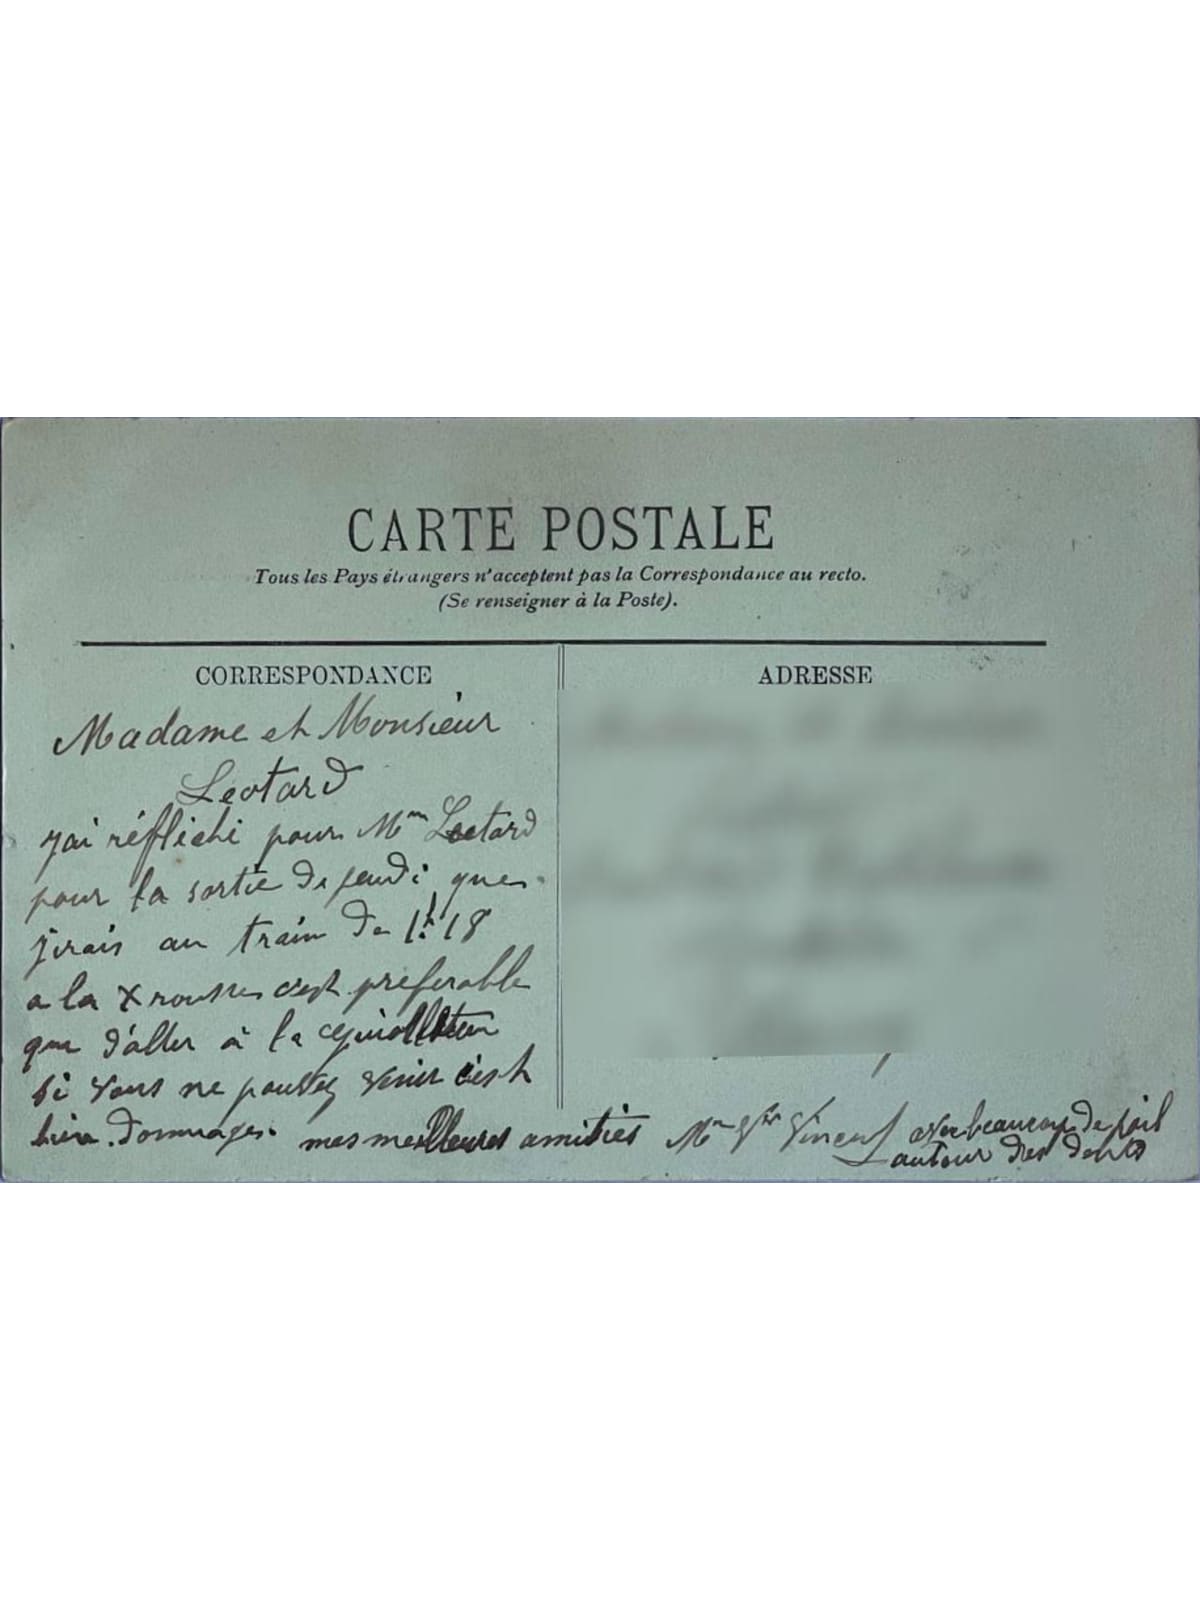 CARTE POSTALE
Tous les Pays étrangers n'acceptent pas la Correspondance au recto.
(Se renseigner à la Poste).
CORRESPONDANCE
ADRESSE
Madame et Monsieur
Leotard
j'ai réfléchi pour Mme Leotard
pour la sortie de jeudi que
j'irais au train de 1h 18
a la X rousse c'est preferable
que d'aller à la
si vous ne pouvez venir c'est
bien dommage. mes meilleures amitiés
Mme Vve Vincent avec beaucoup de poil
autour des dents